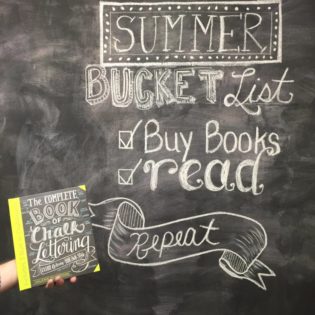 SUMMER
BUCKET List
Buy Books
read
Repeat
The COMPLETE
BOOK
OF
Chalk
Lettering